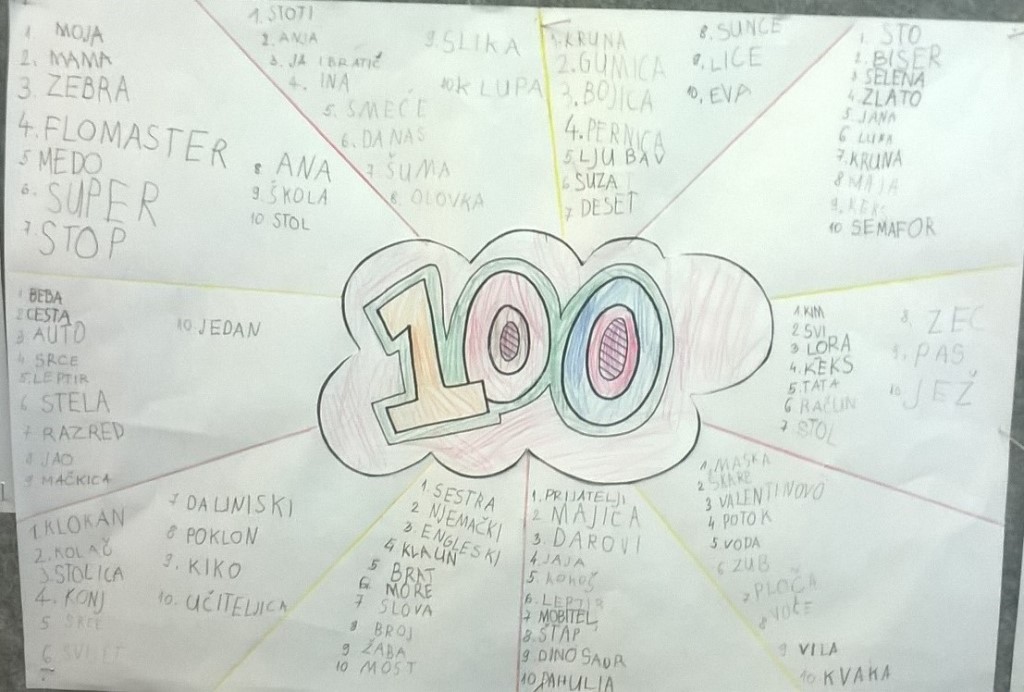 1. MOJA
2. MAMA
3. ZEBRA
4. FLOMASTER
5 MEDO
6. SUPER
7. STOP
8 ANA
9. ŠKOLA
10 STOL
1. STOTI
2. ANJA
3. JA I BRATIĆ
4. INA
5. SMEĆE
6. DANAS
7. ŠUMA
8. OLOVKA
9. SLIKA
10 KLUPA
1. KRUNA
2. GUMICA
3. BOJICA
4. PERNICA
5. LJUBAV
6 SUZA
7 DESET
8. SUNCE
9. LICE
10. EVA
1. STO
2. BISER
3 SELENA
4. ZLATO
5. JANA
6 LUPA
7. KRUNA
8 MAJA
9. KEKS
10 SEMAFOR
1 BEBA
2 CESTA
3 AUTO
4 SRCE
5. LEPTIR
6 STELA
7 RAZRED
8 JAO
9 MAČKICA
10. JEDAN
100
1. KIM
2 SVI
3 LORA
4. KEKS
5. TATA
6 RAČUN
7 STOL
8. ZEC
9. PAS
10 JEŽ
1. KLOKAN
2. KOLAČ
3. STOLICA
4. KONJ
5
6 SVIJET
7 DALJNISKI
8 POKLON
9. KIKO
10. UČITELJICA
1. SESTRA
2 NJEMAČKI
3. ENGLESKI
4 KLAUN
5 BRAT
6. MORE
7 SLOVA
8 BROJ
9 ŽABA
10 MOST
1. PRIJATELJI
2 MAJICA
3. DAROVI
4. JAJA
5. KOKOŠ
6. LEPTIR
7 MOBITEL
8. ŠTAP
9. DINOSAUR
10. PAHULJA
1. MASKA
2 ŠKARE
3 VALENTINOVO
4 POTOK
5. VODA
6 ZUB
7 PLOČA
8 VOĆE
9 VILA
10 KVAKA